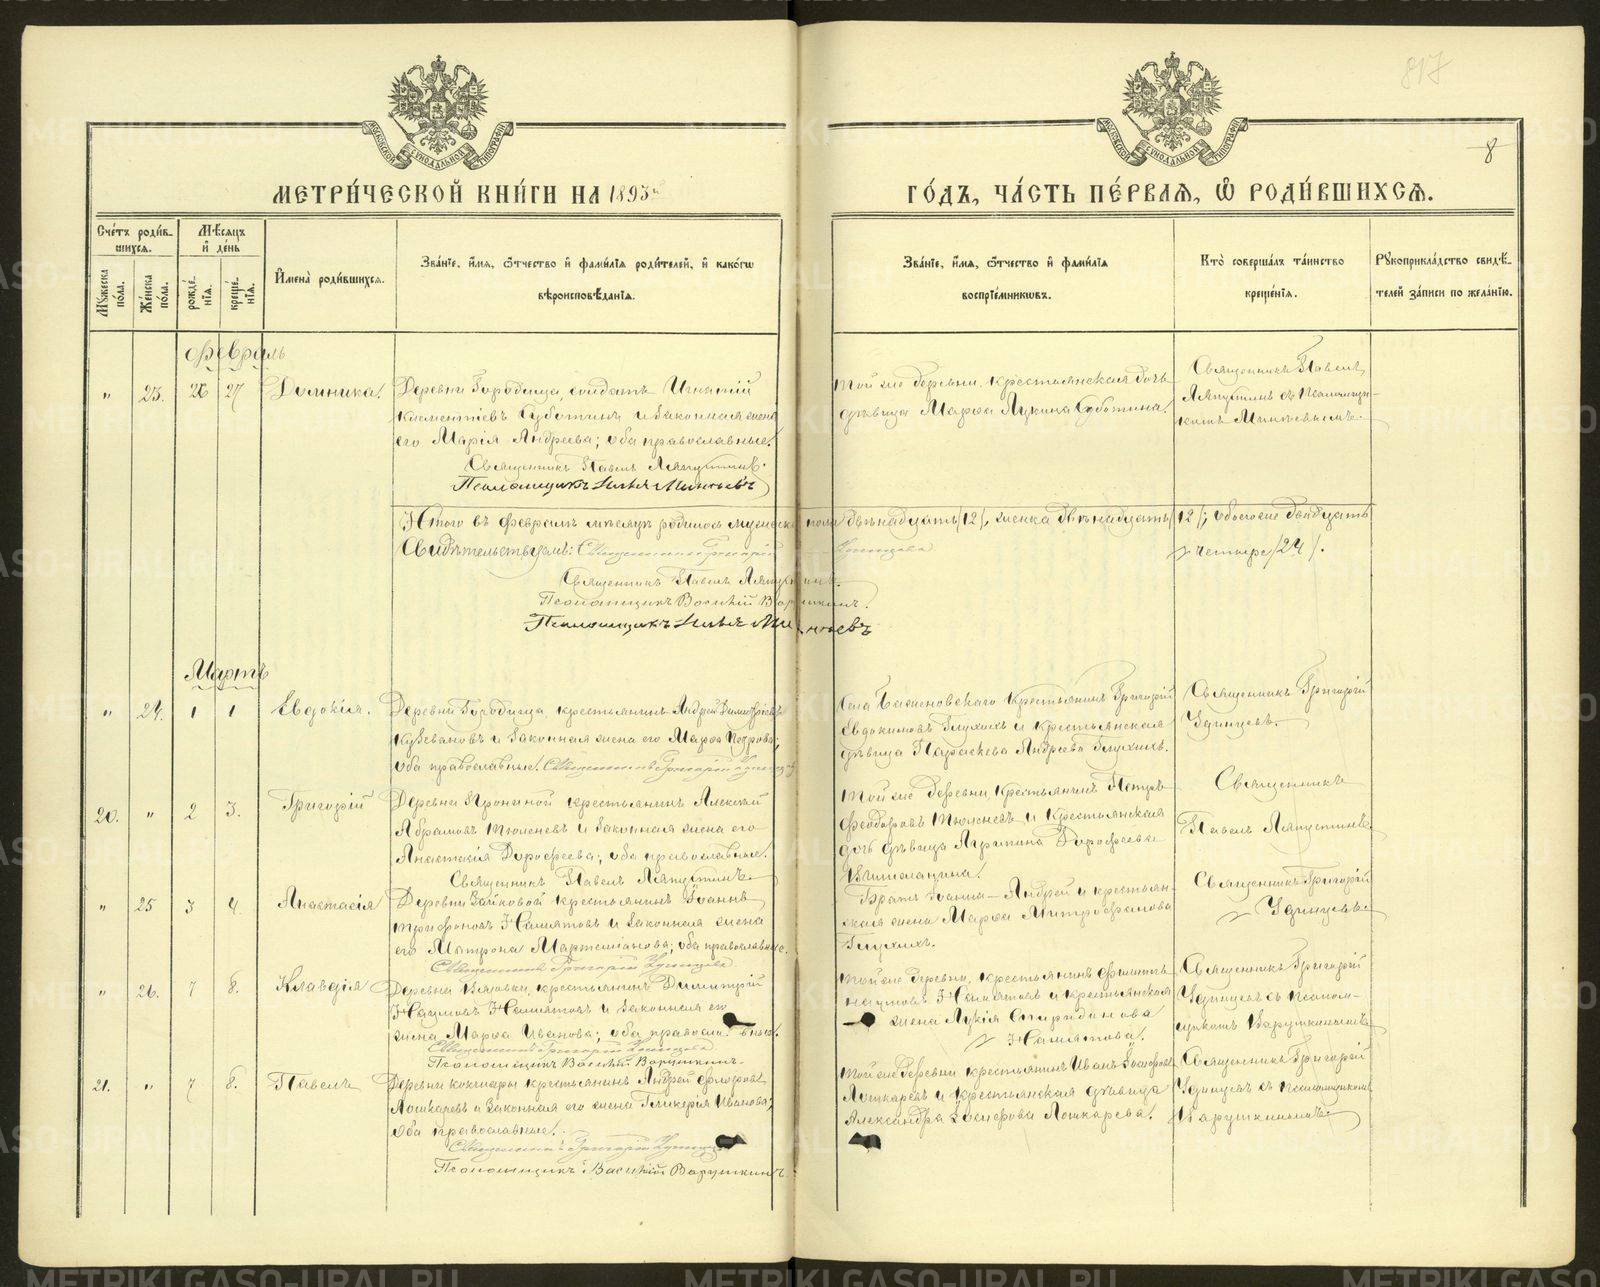 817
8
МОСКОВСКОЙ СѴНОДАЛЬНОЙ ТИПОГРАФІИ
МОСКОВСКОЙ СѴНОДАЛЬНОЙ ТИПОГРАФІИ
МЕТРИ́ЧЕСКОЙ КНИ́ГИ НА 1893
ГО́ДЪ, ЧА́СТЬ ПЕ́РВАЯ, Ѽ РОДИ́ВШИХСЯ.
Сче́тъ роди́в-
шихся.
Мѣ́сяцъ
и҆ де́нь
Мꙋ́жеска по́ла.
Же́нска по́ла.
рожде́-нїя.
креще́-нїя.
И҆мена̀ роди́вшихся.
Зва́нїе, и҆́мя, ѻ҆́тчество и҆ фами́лїя роди́телей, и҆ како́гѡ
вѣроисповѣ́данїя.
Зва́нїе, и҆́мя, ѻ҆́тчество и҆ фами́лїя
воспрїе́мникѡвъ.
Кто̀ соверша́лъ та́инство
креще́нїя.
Рꙋкоприкла́дство свидѣ́-
телей за́писи по жела́нїю.
Февраль
" 23. 26 27 Домника.
Деревни Городища, солдатъ Игнатій
Климентіевъ Субботинъ и законная жена
его Марія Андреева; оба православные.
Священникъ Павелъ Ляпустинъ.
Псаломщикъ Илья Мотьевъ
Той же деревни, крестьянская дочь
дѣвица Марѳа Лукина Субботина.
Священникъ Павелъ
Ляпустинъ съ Псаломщи-
комъ
Итого въ февралѣ мѣсяцѣ родилось мужеска пола двѣнадцать /12/, женска двѣнадцать /12/; обоего же двадцать
четыре /24/.
Свидѣтельствуемъ: Священникъ Григорій Удинцевъ
Священникъ Павелъ Ляпустинъ.
Псаломщикъ Василій Варушкинъ.
Псаломщикъ Илья
Мартъ
" 24. 1 1 Евдокія.
Деревни Городища, крестьянинъ Андрей Димитріевъ
и законная жена его Марѳа Петрова;
оба православные. Священникъ Григорій Удинцевъ
крестьянинъ Григорій
Евдокимовъ Глухихъ и крестьянская
дѣвица Параскева Андреева Глухихъ.
Священникъ Григорій
Удинцевъ.
20. " 2 3. Григорій
Деревни Прониной крестьянинъ Алексѣй
Абрамовъ Тюленевъ и законная жена его
Анастасія Дороѳеева; оба православные.
Священникъ Павелъ Ляпустинъ
Той же деревни, крестьянинъ Петръ
Ѳеодоровъ Тюленевъ и крестьянская
дочь дѣвица Агрипина Дороѳеева
Священникъ
Павелъ Ляпустинъ
" 25 3 4. Анастасія
Деревни Зайковой крестьянинъ Іоаннъ
Трифоновъ Намятовъ и законная жена
его Матрона Мартеміанова; оба православные.
Священникъ Григорій Удинцевъ
Братъ Іоанна — Андрей и крестьян-
ская жена Марѳа Митрофанова
Глухихъ.
Священникъ Григорій
Удинцевъ
" 26. 7 8. Клавдія
Деревни Вязовки, крестьянинъ Димитрій
Наумовъ Намятовъ и законная его
жена Марѳа Иванова; оба православные.
Священникъ Григорій Удинцевъ
Псаломщикъ Василій Варушкинъ.
Той же деревни, крестьянинъ Филиппъ
Наумовъ Намятовъ и крестьянская
жена Лукія Спиридонова
Намятова.
Священникъ Григорій
Удинцевъ съ псалом-
щикомъ Варушкинымъ
21. " 7 8. Павелъ
Деревни Кокшары крестьянинъ Андрей
Лошкаревъ и законная его жена Гликерія Иванова;
оба православные.
Священникъ Григорій Удинцевъ
Псаломщикъ Василій Варушкинъ
Той же деревни крестьянинъ Иванъ
Лошкаревъ и крестьянская дѣвица
Александра Лошкарева.
Священникъ Григорій
Удинцевъ съ псаломщикомъ
Варушкинымъ
METRIKI.GASO-URAL.RU